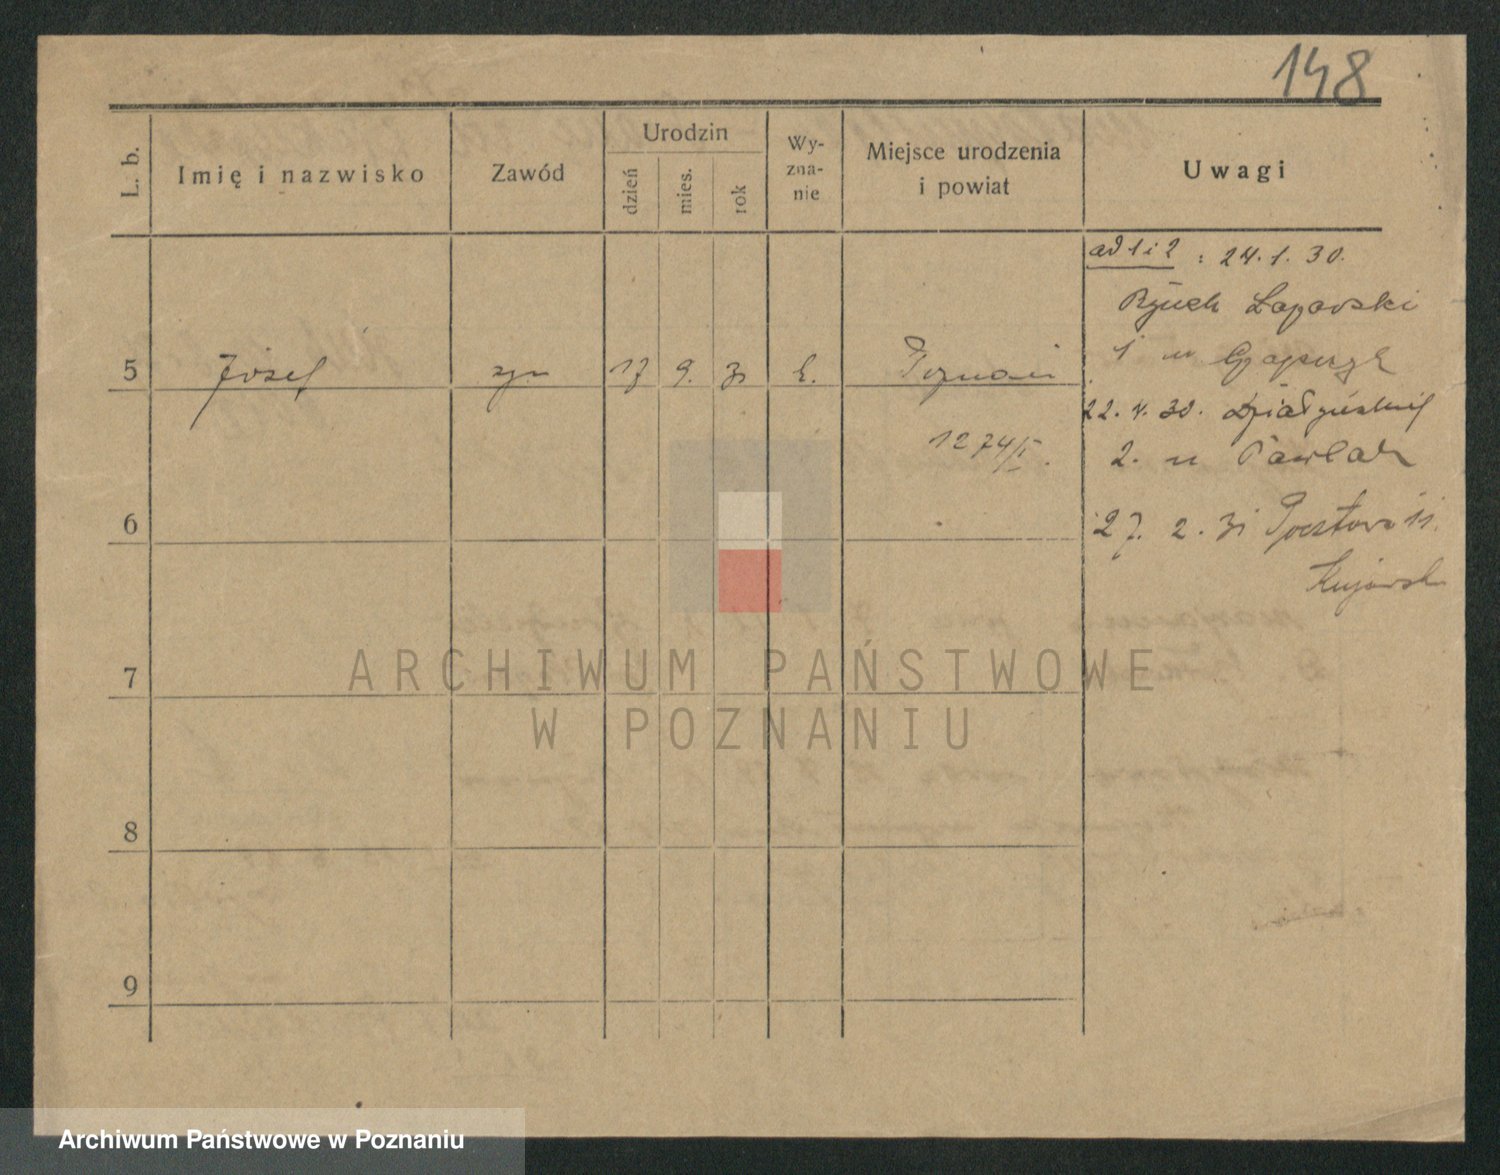 148
L. b.
Imię i nazwisko
Zawód
Urodzin
dzień
mies.
rok
Wy-
zna-
nie
Miejsce urodzenia
i powiat
Uwagi
ad 1 i 2 : 24.1.30.
Rynek Łazarski
1 u
5 Józef syn 17 9. 31 k. Poznań
22.4.30. Działyńskich
1274/I.
2. u Pawlak
6
27. 2. 31 Pocztowa 11.
Kujawsk
7
8
9
ARCHIWUM PAŃSTWOWE
W POZNANIU
Archiwum Państwowe w Poznaniu